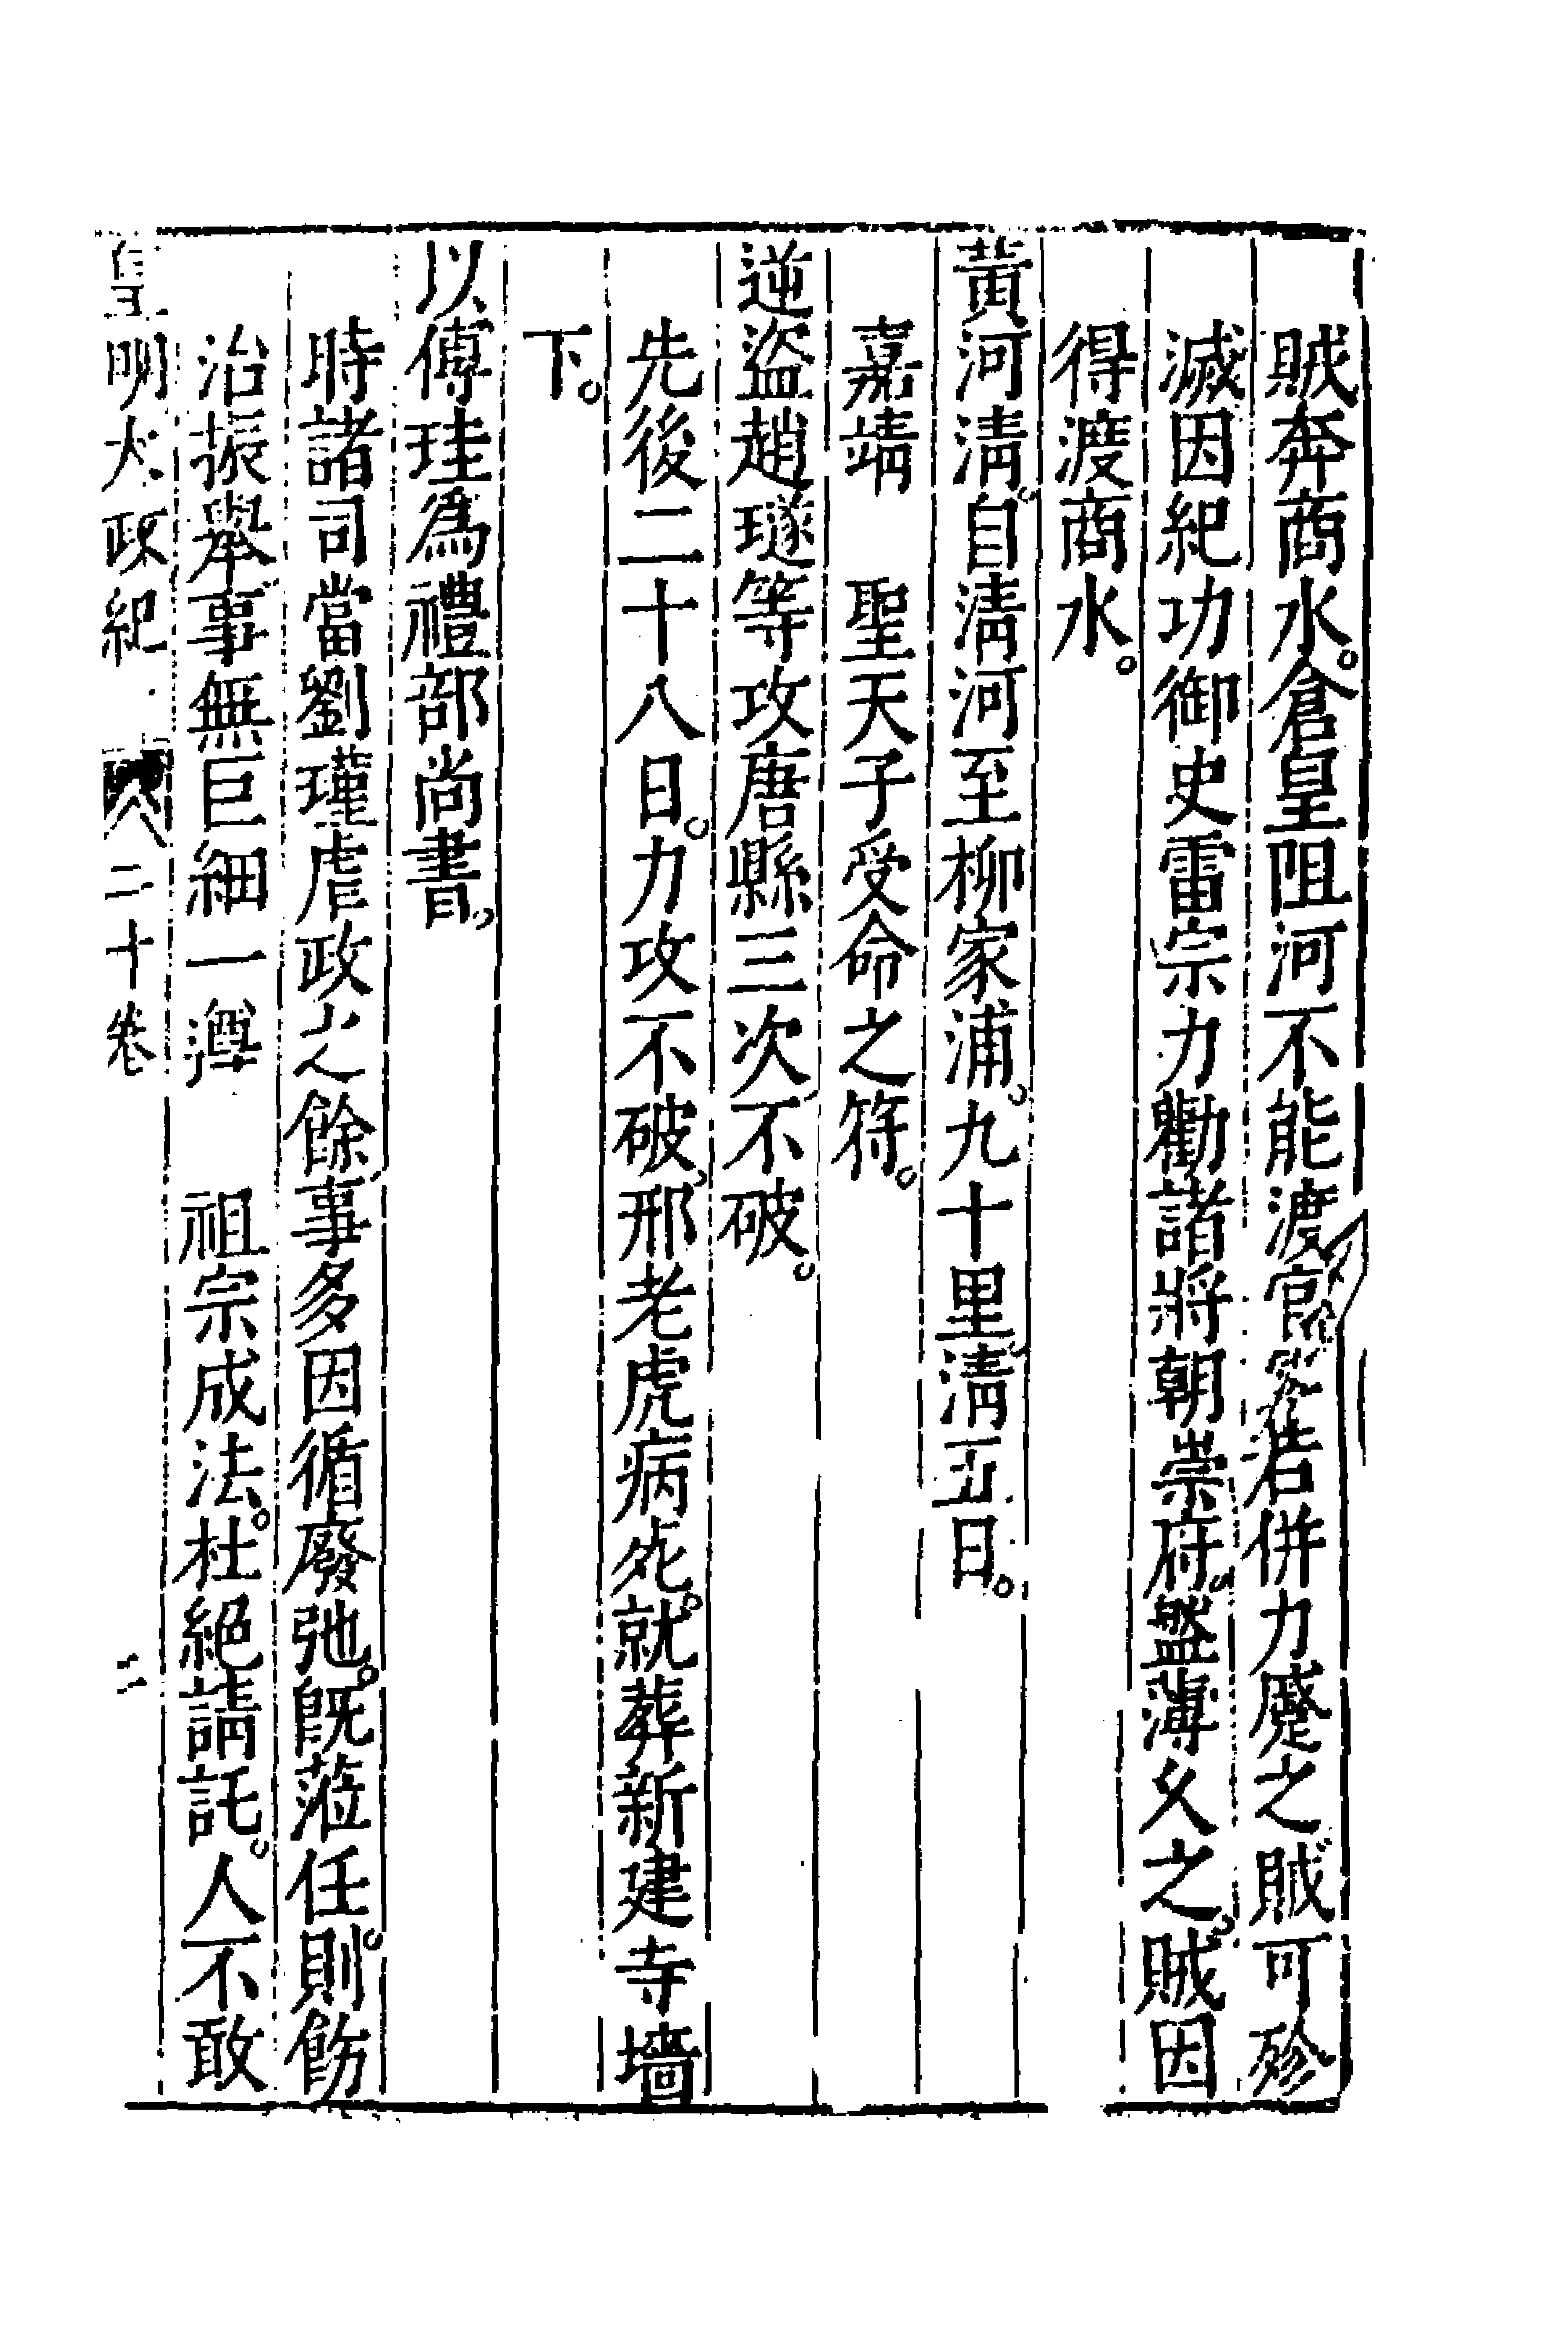 賊奔商水。倉皇阻河不能渡官軍若併力蹙之賊可殄
滅因紀功御史雷宗力勸諸將朝崇府。盤薄久之。賊因
得渡商水。
黃河清。自清河至柳家浦。九十里。清五日。
嘉靖　聖天子受命之符。
逆盜趙璲等攻唐縣三次不破。
先後二十八日。力攻不破。邢老虎病死。就葬新建寺墻
下。
以傅珪爲禮部尚書。
時諸司當劉瑾虐政之餘。事多因循廢弛。旣蒞任。則飭
治振舉。事無巨細一遵　祖宗成法。杜絕請託。人不敢
皇明大政紀　二十卷　二